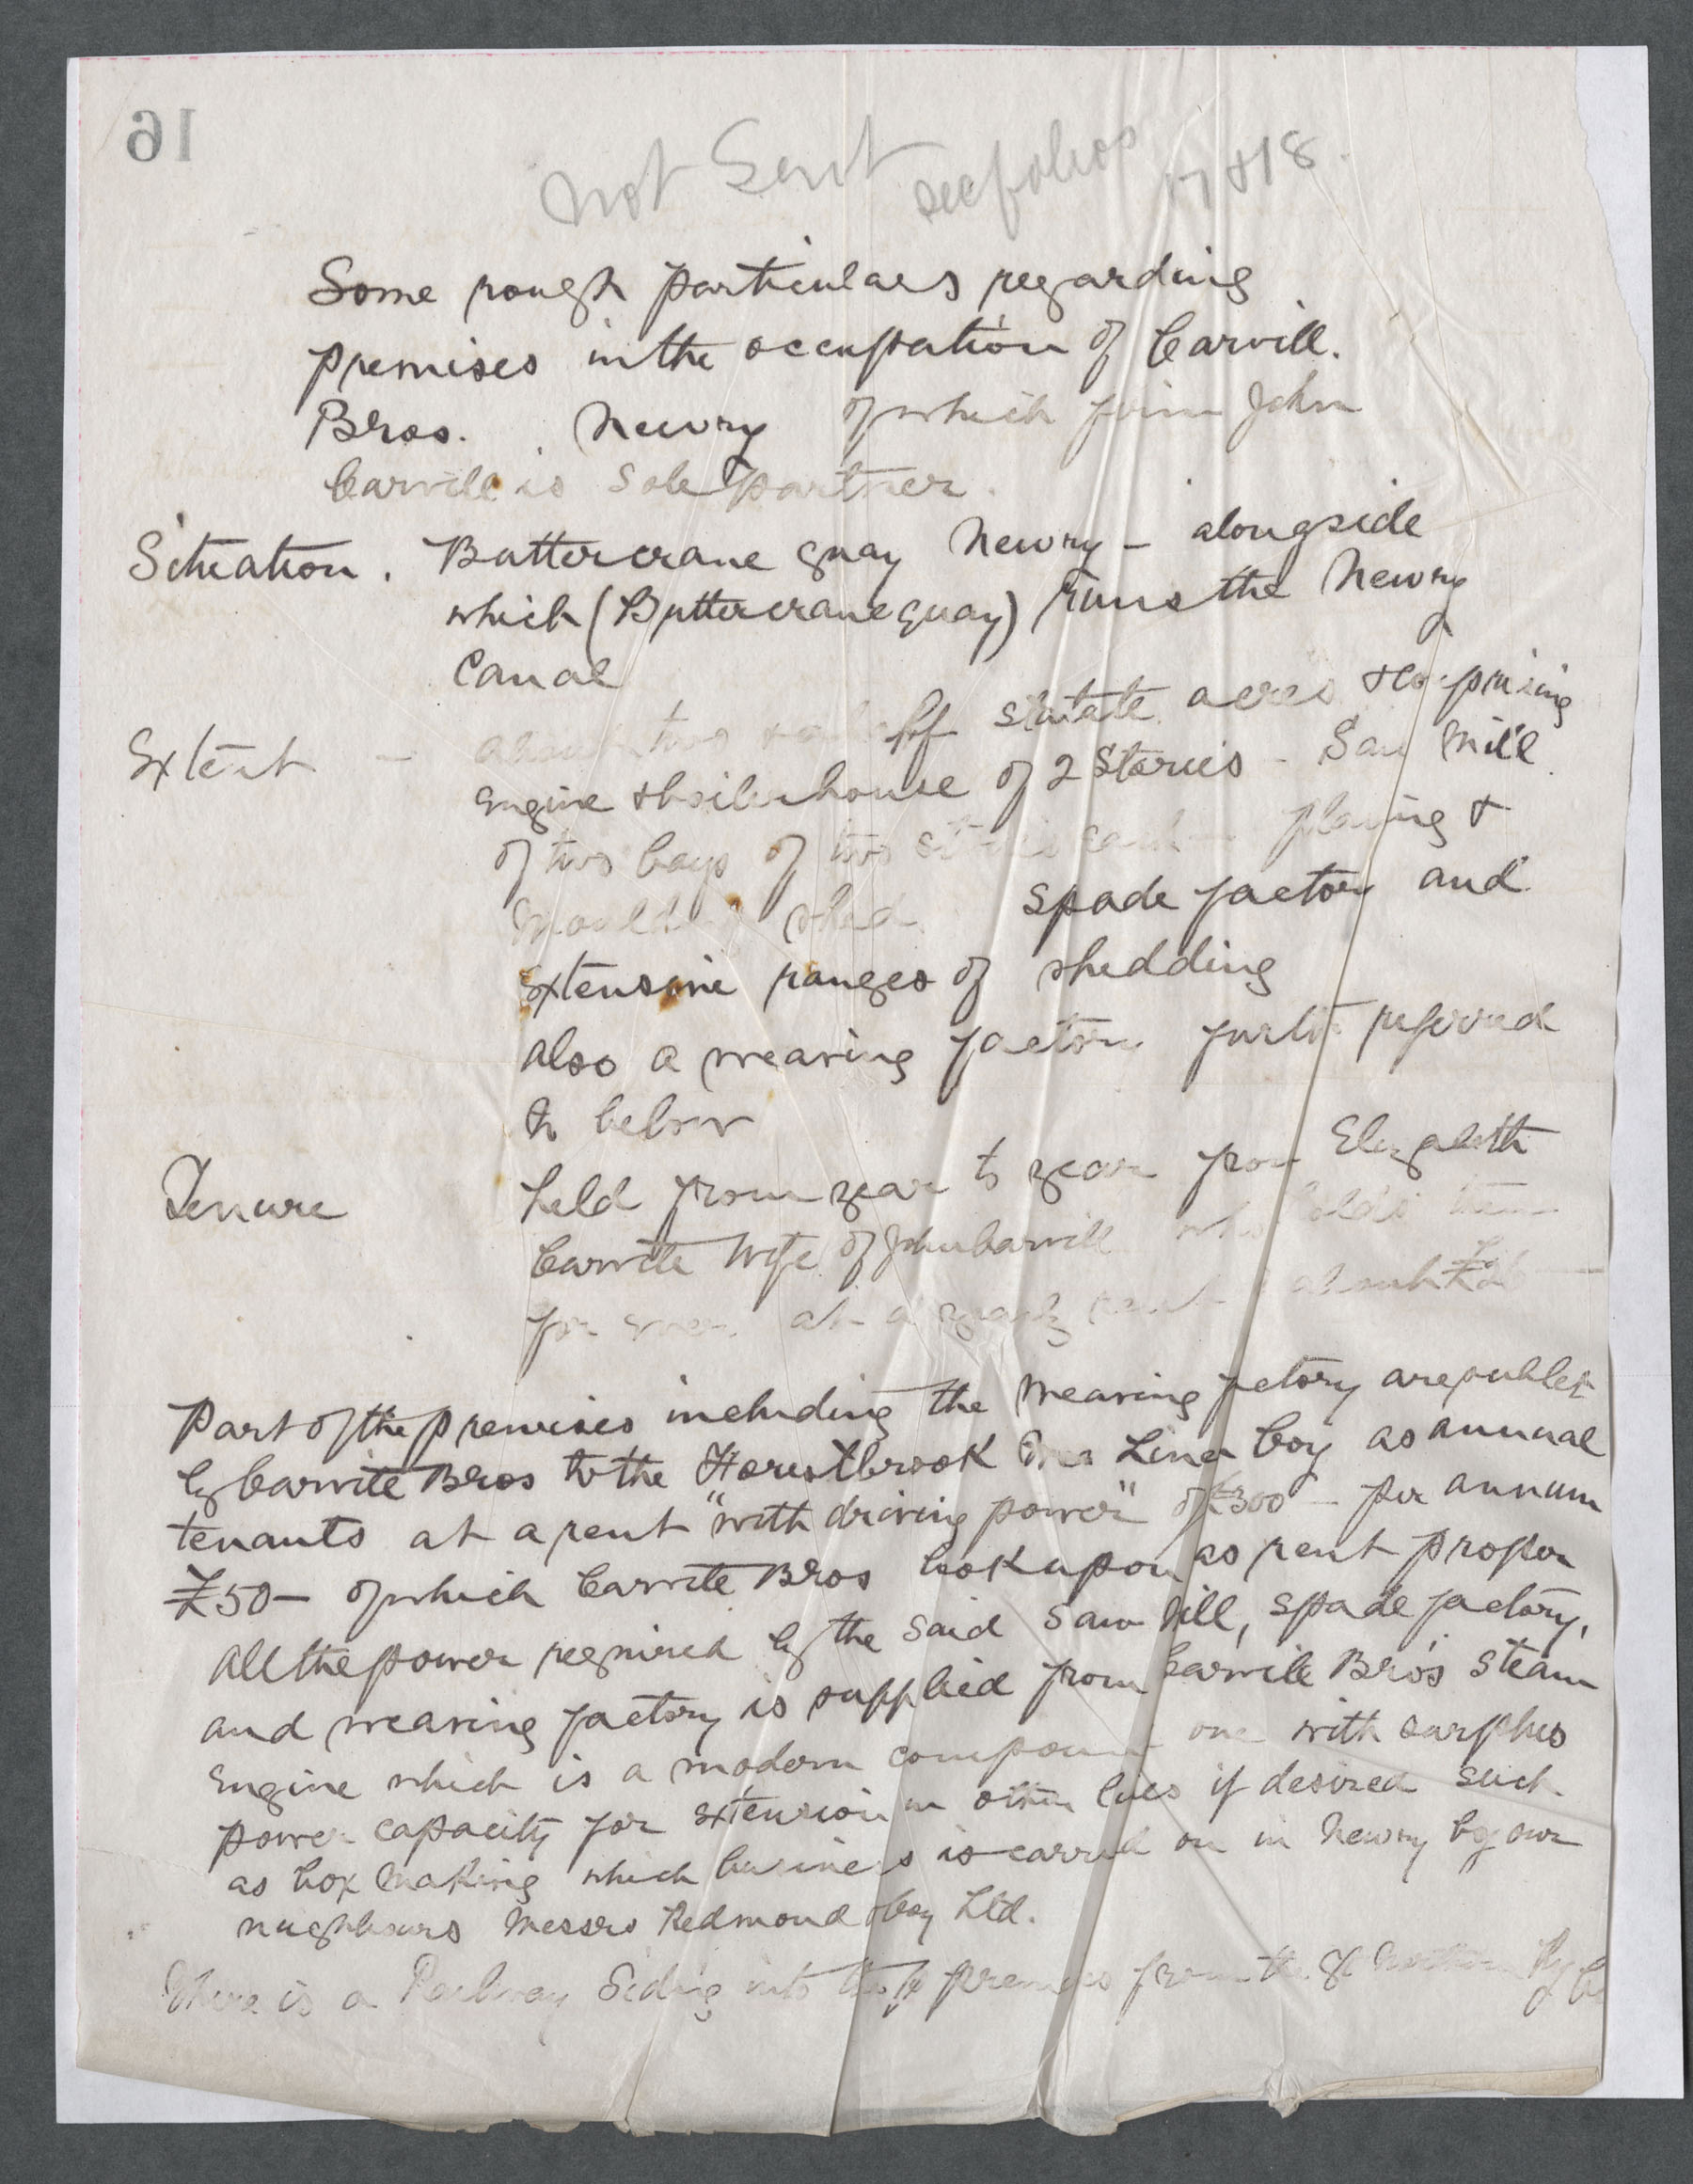 16
Not Sent see folios 17 & 18.
Some rough particulars regarding
premises in the occupation of Carvill
Bros. Newry of which firm John
Carvill is Sole partner.
Situation. Buttercrane quay Newry - alongside
which (Buttercrane quay) runs the Newry
Canal
Extent - about two & a half statute acres & comprising
Engine & boilerhouse of 2 stories - Saw Mill
of two bays of two stories each - planing &
Moulding shed spade factory and
Extensive ranges of shedding
also a weaving factory further referred
to below
Tenure held from year to year from Elizabeth
Carvill Wife of John Carvill who holds them
for ever at a yearly rent about
Part of the premises including the weaving factory are sublet
by Carvill Bros to the Forestbrook Linen Coy as annual
tenants at a rent "with driving power" of £300 - per annum
£50 - of which Carvill Bros look upon as rent proper
All the power required by the said Saw Mill, spade factory,
and weaving factory is supplied from Carvill Bros Steam
Engine which is a modern compound one with surplus
power capacity for extension in other lines if desired such
as box making which business is carried on in Newry by our
neighbours Messrs Redmond & Coy Ltd.
There is a Railway Siding into the premises from the Gt Northern Ry Co